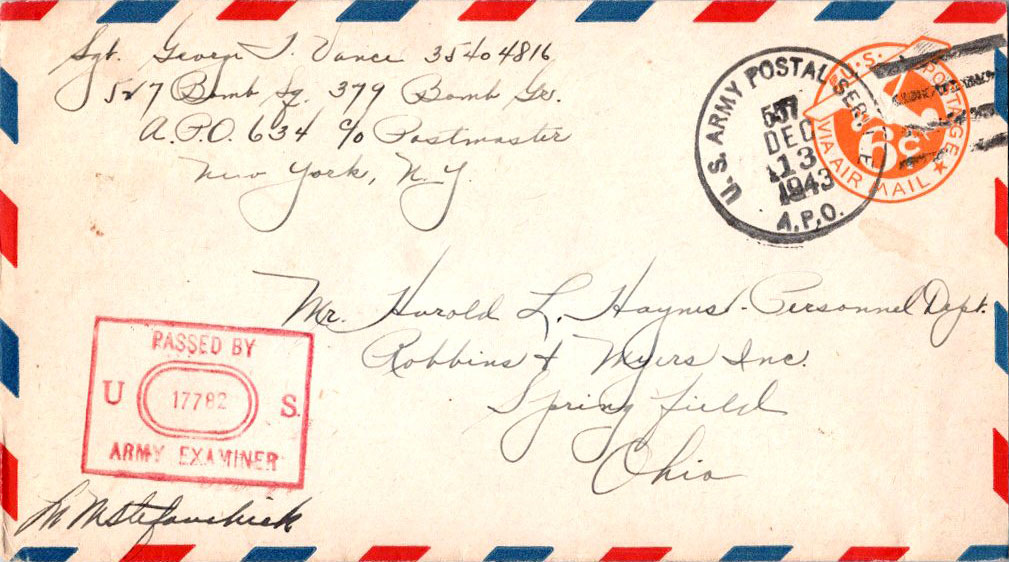 Sgt. George T. Vance 35404816
527 Bomb Sq. 379 Bomb Gr.
A.P.O. 634 c/o Postmaster
New York, N.Y.
U.S. ARMY POSTAL SERVICE
557
DEC
13
1943
A.P.O.
U.S. POSTAGE
6c
VIA AIR MAIL
Mr. Harold L. Haynes - Personnel Dept.
Robbins & Myers Inc.
Springfield
Ohio
PASSED BY
U 17782 S.
ARMY EXAMINER